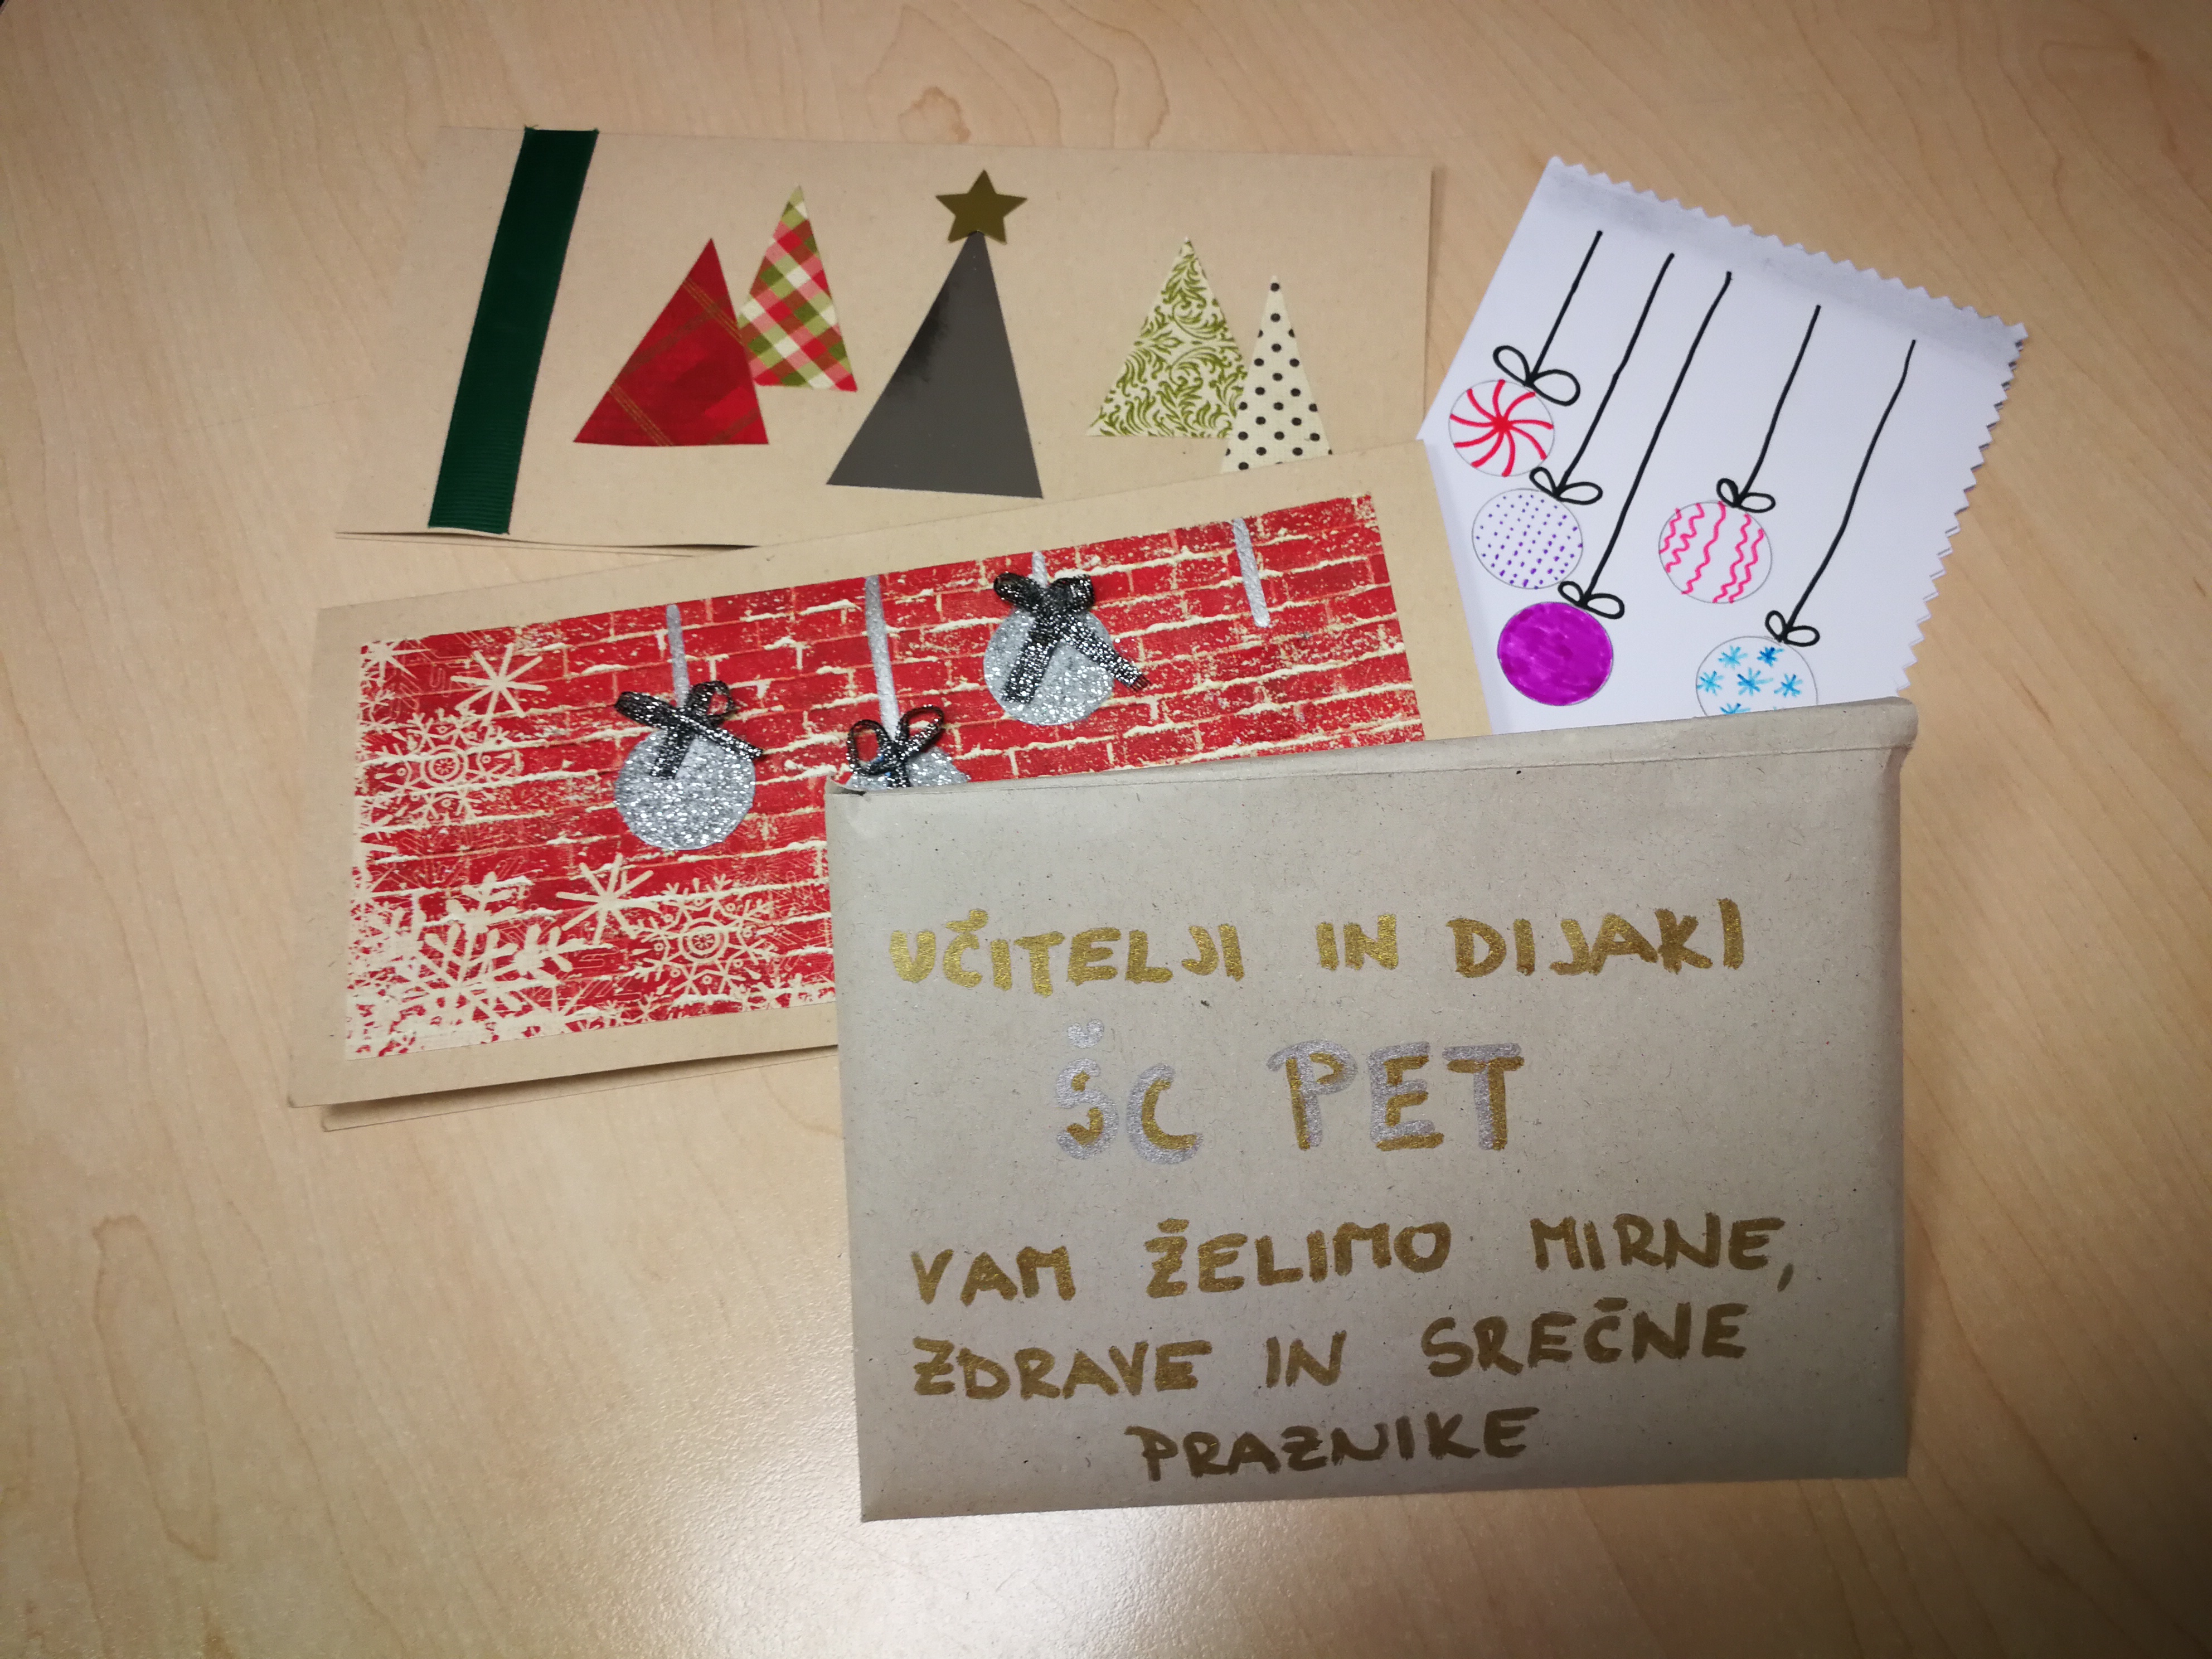 UČITELJI IN DIJAKI
ŠC PET
VAM ŽELIMO MIRNE,
ZDRAVE IN SREČNE
PRAZNIKE